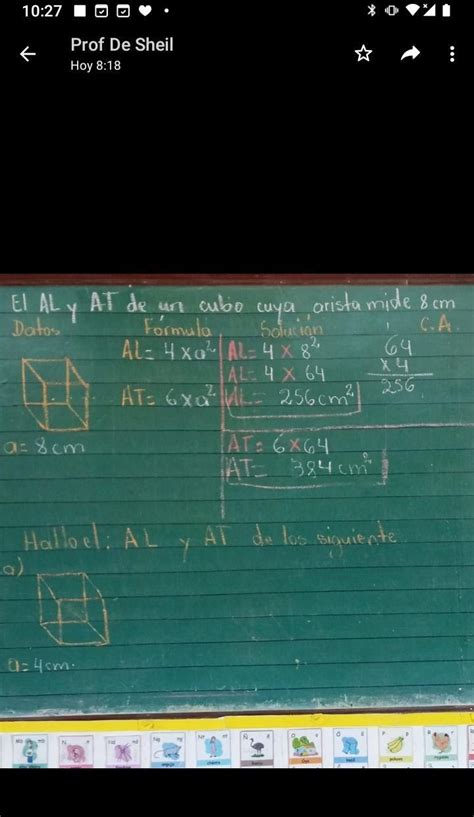 10:27
Prof De Sheil
Hoy 8:18
El AL y AT de un cubo cuya arista mide 8 cm
Datos Fórmula Solución C.A.
AL= 4 x a² AL= 4 x 8² 64
AL= 4 x 64 x 4
AT= 6 x a² AL= 256 cm² 256
a= 8 cm AT= 6 x 64
AT= 384 cm²
Hallo el: AL y AT de los siguiente
a)
a= 4 cm.